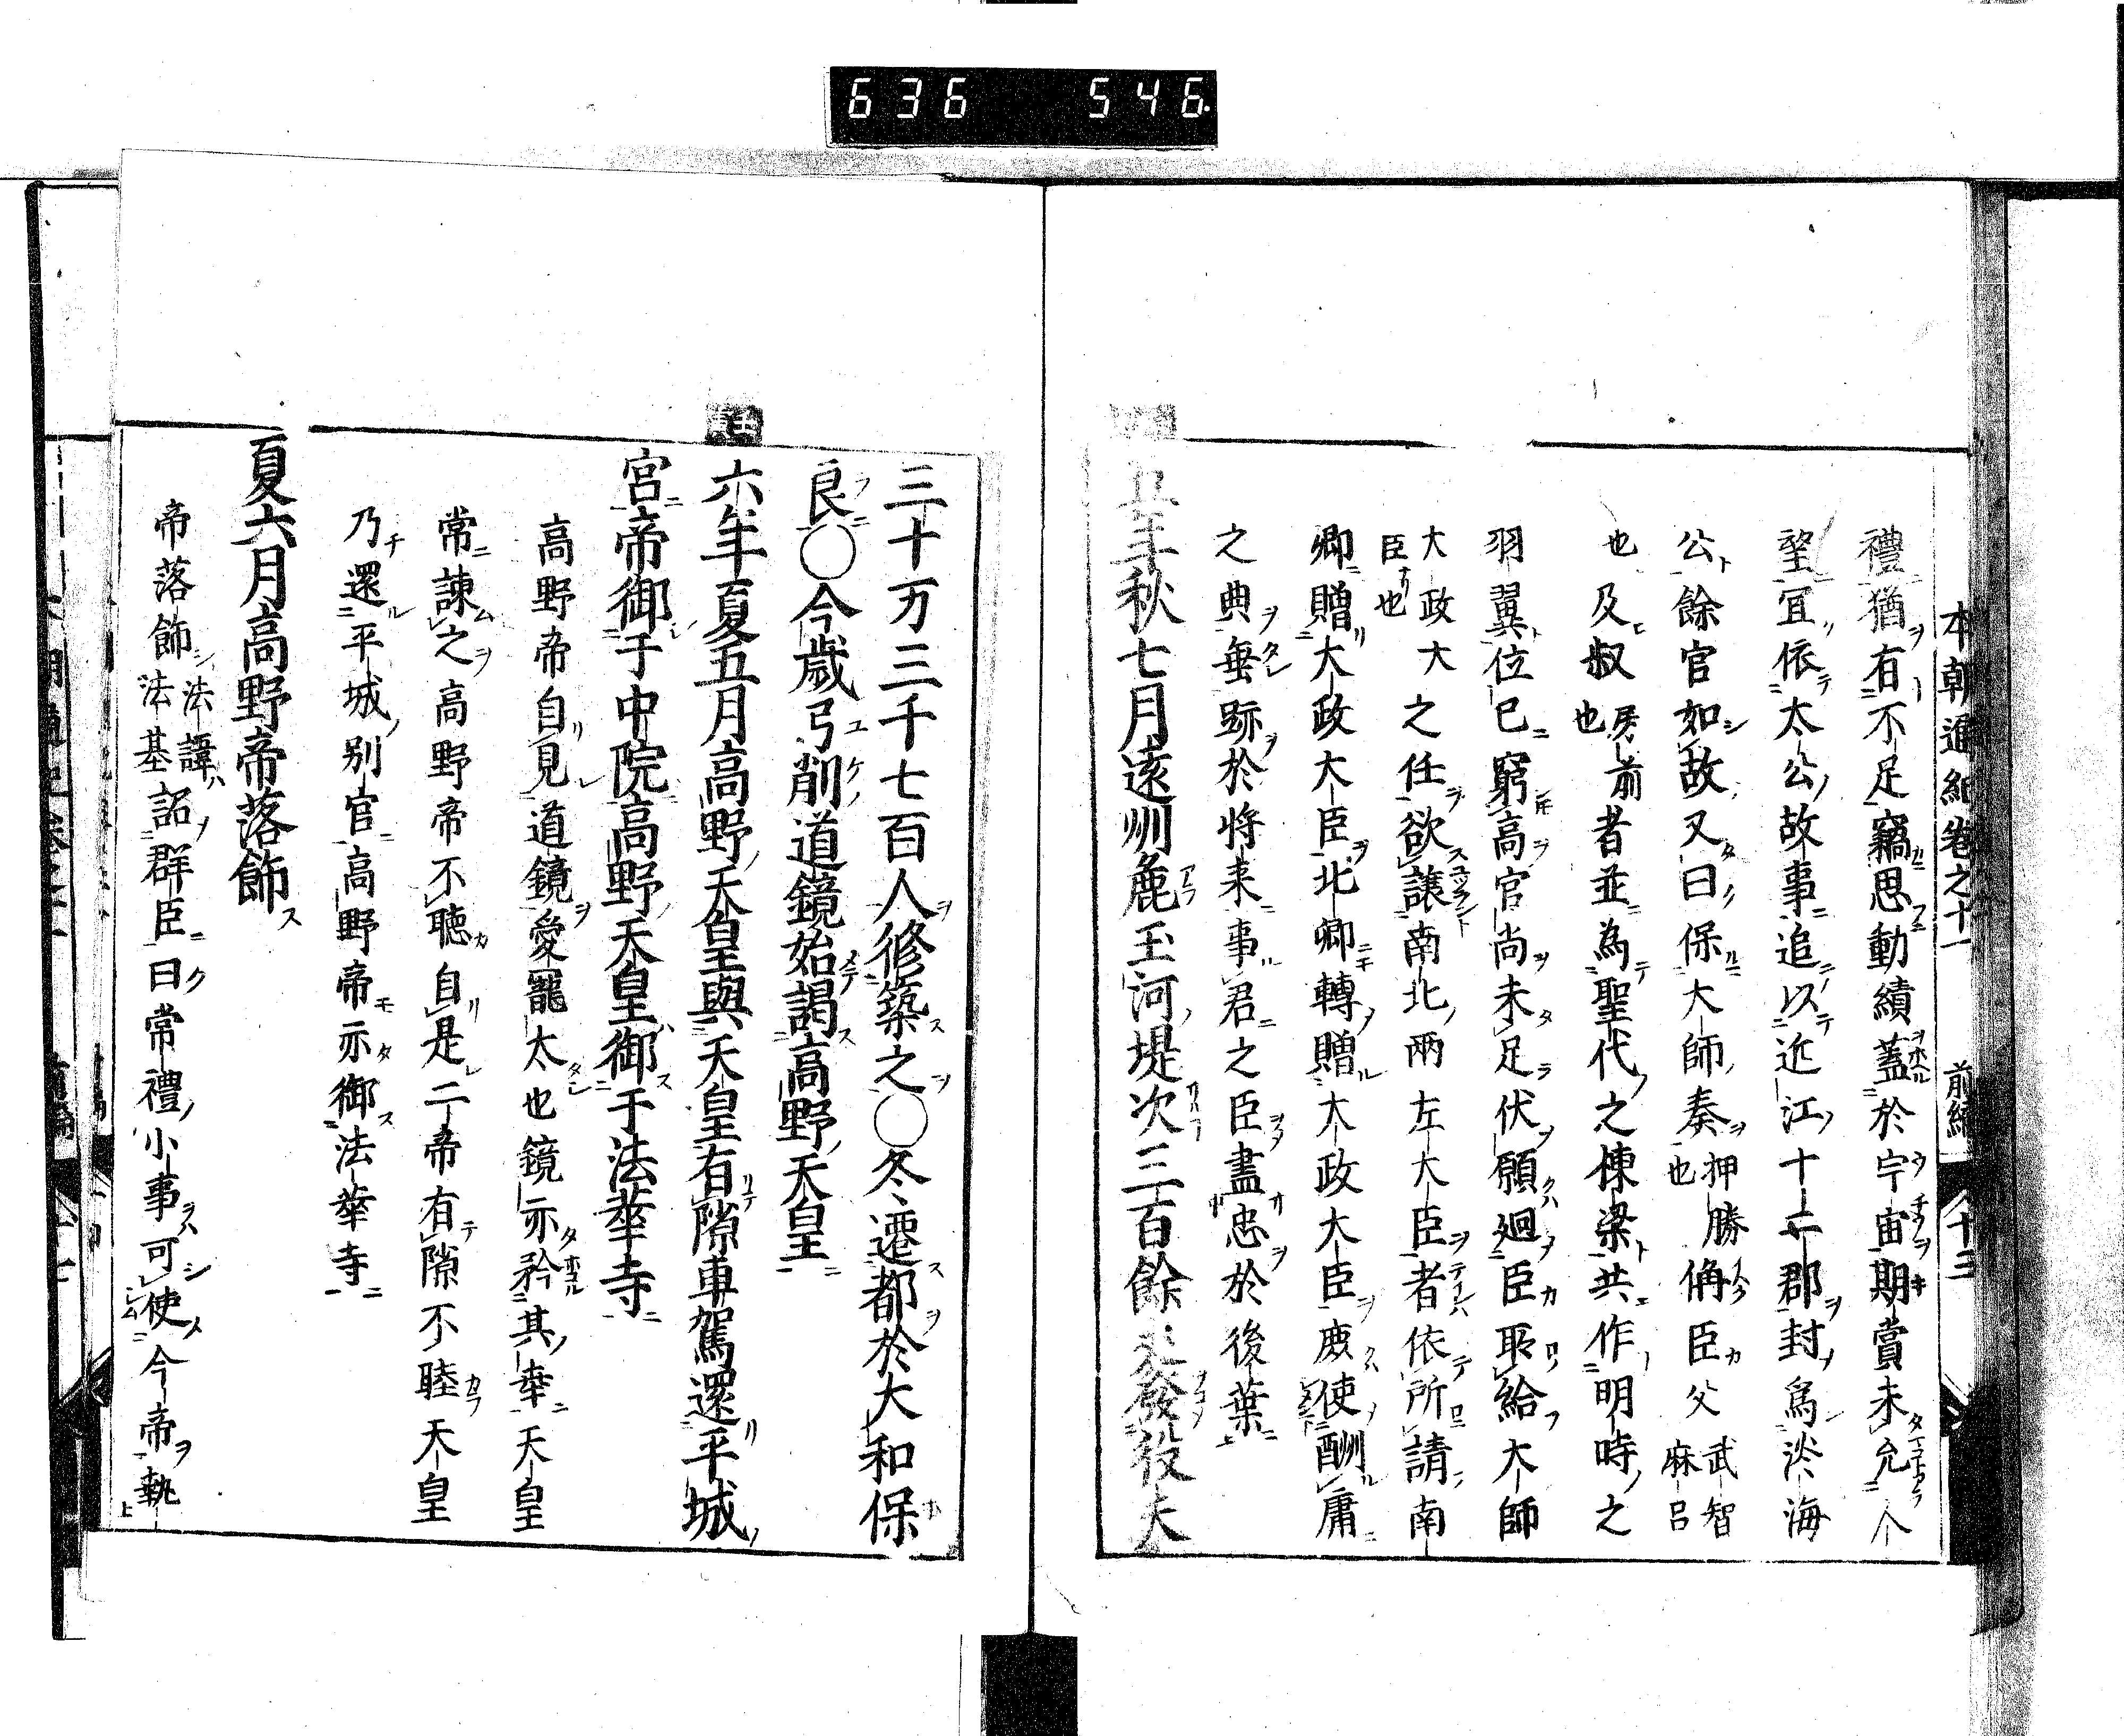 636 546.
本朝通紀卷之十一 前編 十三
禮猶有不足竊思動績蓋於宇宙期賞未允人
望宜依太公故事追以近江十二郡封為淡海
公餘官如故又曰保大師奏押勝偁臣カ父武智麻呂
也及叔房前也者並為聖代之棟梁共作明時之
羽翼位已窮高官尚未足伏願廻臣カ所給大師
大政大臣也之任欲讓南北兩左大臣者依所請南
卿贈大政大臣北卿轉贈大政大臣庶使酬庸
之典垂跡於将来事君之臣盡忠於後葉
五年秋七月遠州麁玉河堤次三百餘丈發役夫
三十万三千七百人修築之〇冬遷都於大和保
良〇今歳弓削道鏡始謁高野天皇
六年夏五月高野天皇與天皇有隙車駕還平城
宮帝御于中院高野天皇御于法華寺
高野帝自見道鏡愛寵太也鏡亦矜其幸天皇
常諫之高野帝不聴自是二帝有隙不睦天皇
乃還平城別官高野帝亦御法華寺
夏六月高野帝落飾
帝落飾法諱法基詔群臣曰常禮小事可使今帝執